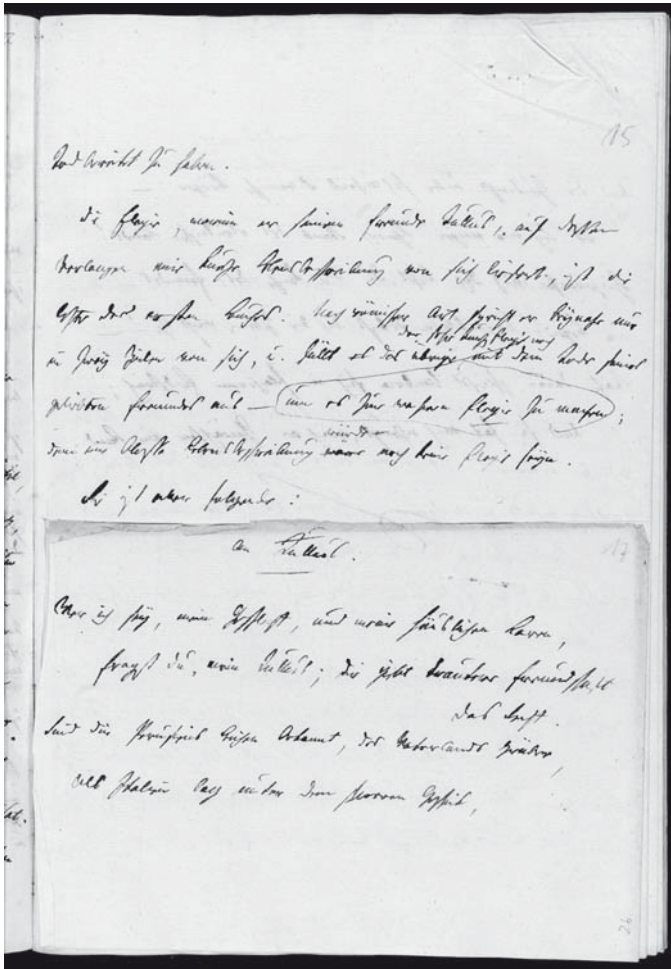 15
Tod bereitet zu haben.
Die Elegie, worin er seinem Freunde Tullus, auf dessen
Verlangen eine kurze Beschreibung von sich liefert, ist die
letzte des ersten Buches. Nach römischer Art spricht er beynahe nur
der sehr kurzen Elegie noch
in zwey Zeilen von sich, u. füllt das übrige mit dem Tode seines
geliebten Freundes aus — um es zur wahren Elegie zu machen;
würde
denn eine bloße Lebensbeschreibung wäre noch keine Elegie seyn.
Sie ist aber folgende:
17
An Tullus.
Wer ich sey, mein Geschlecht, und meine häuslichen Laren,
fragst du, mein Tullus; dir giebt Freundschaft
das Recht.
Sind dir Perusiens bekannt, des Vaterlands Gräber,
als Italien lag unter dem
26